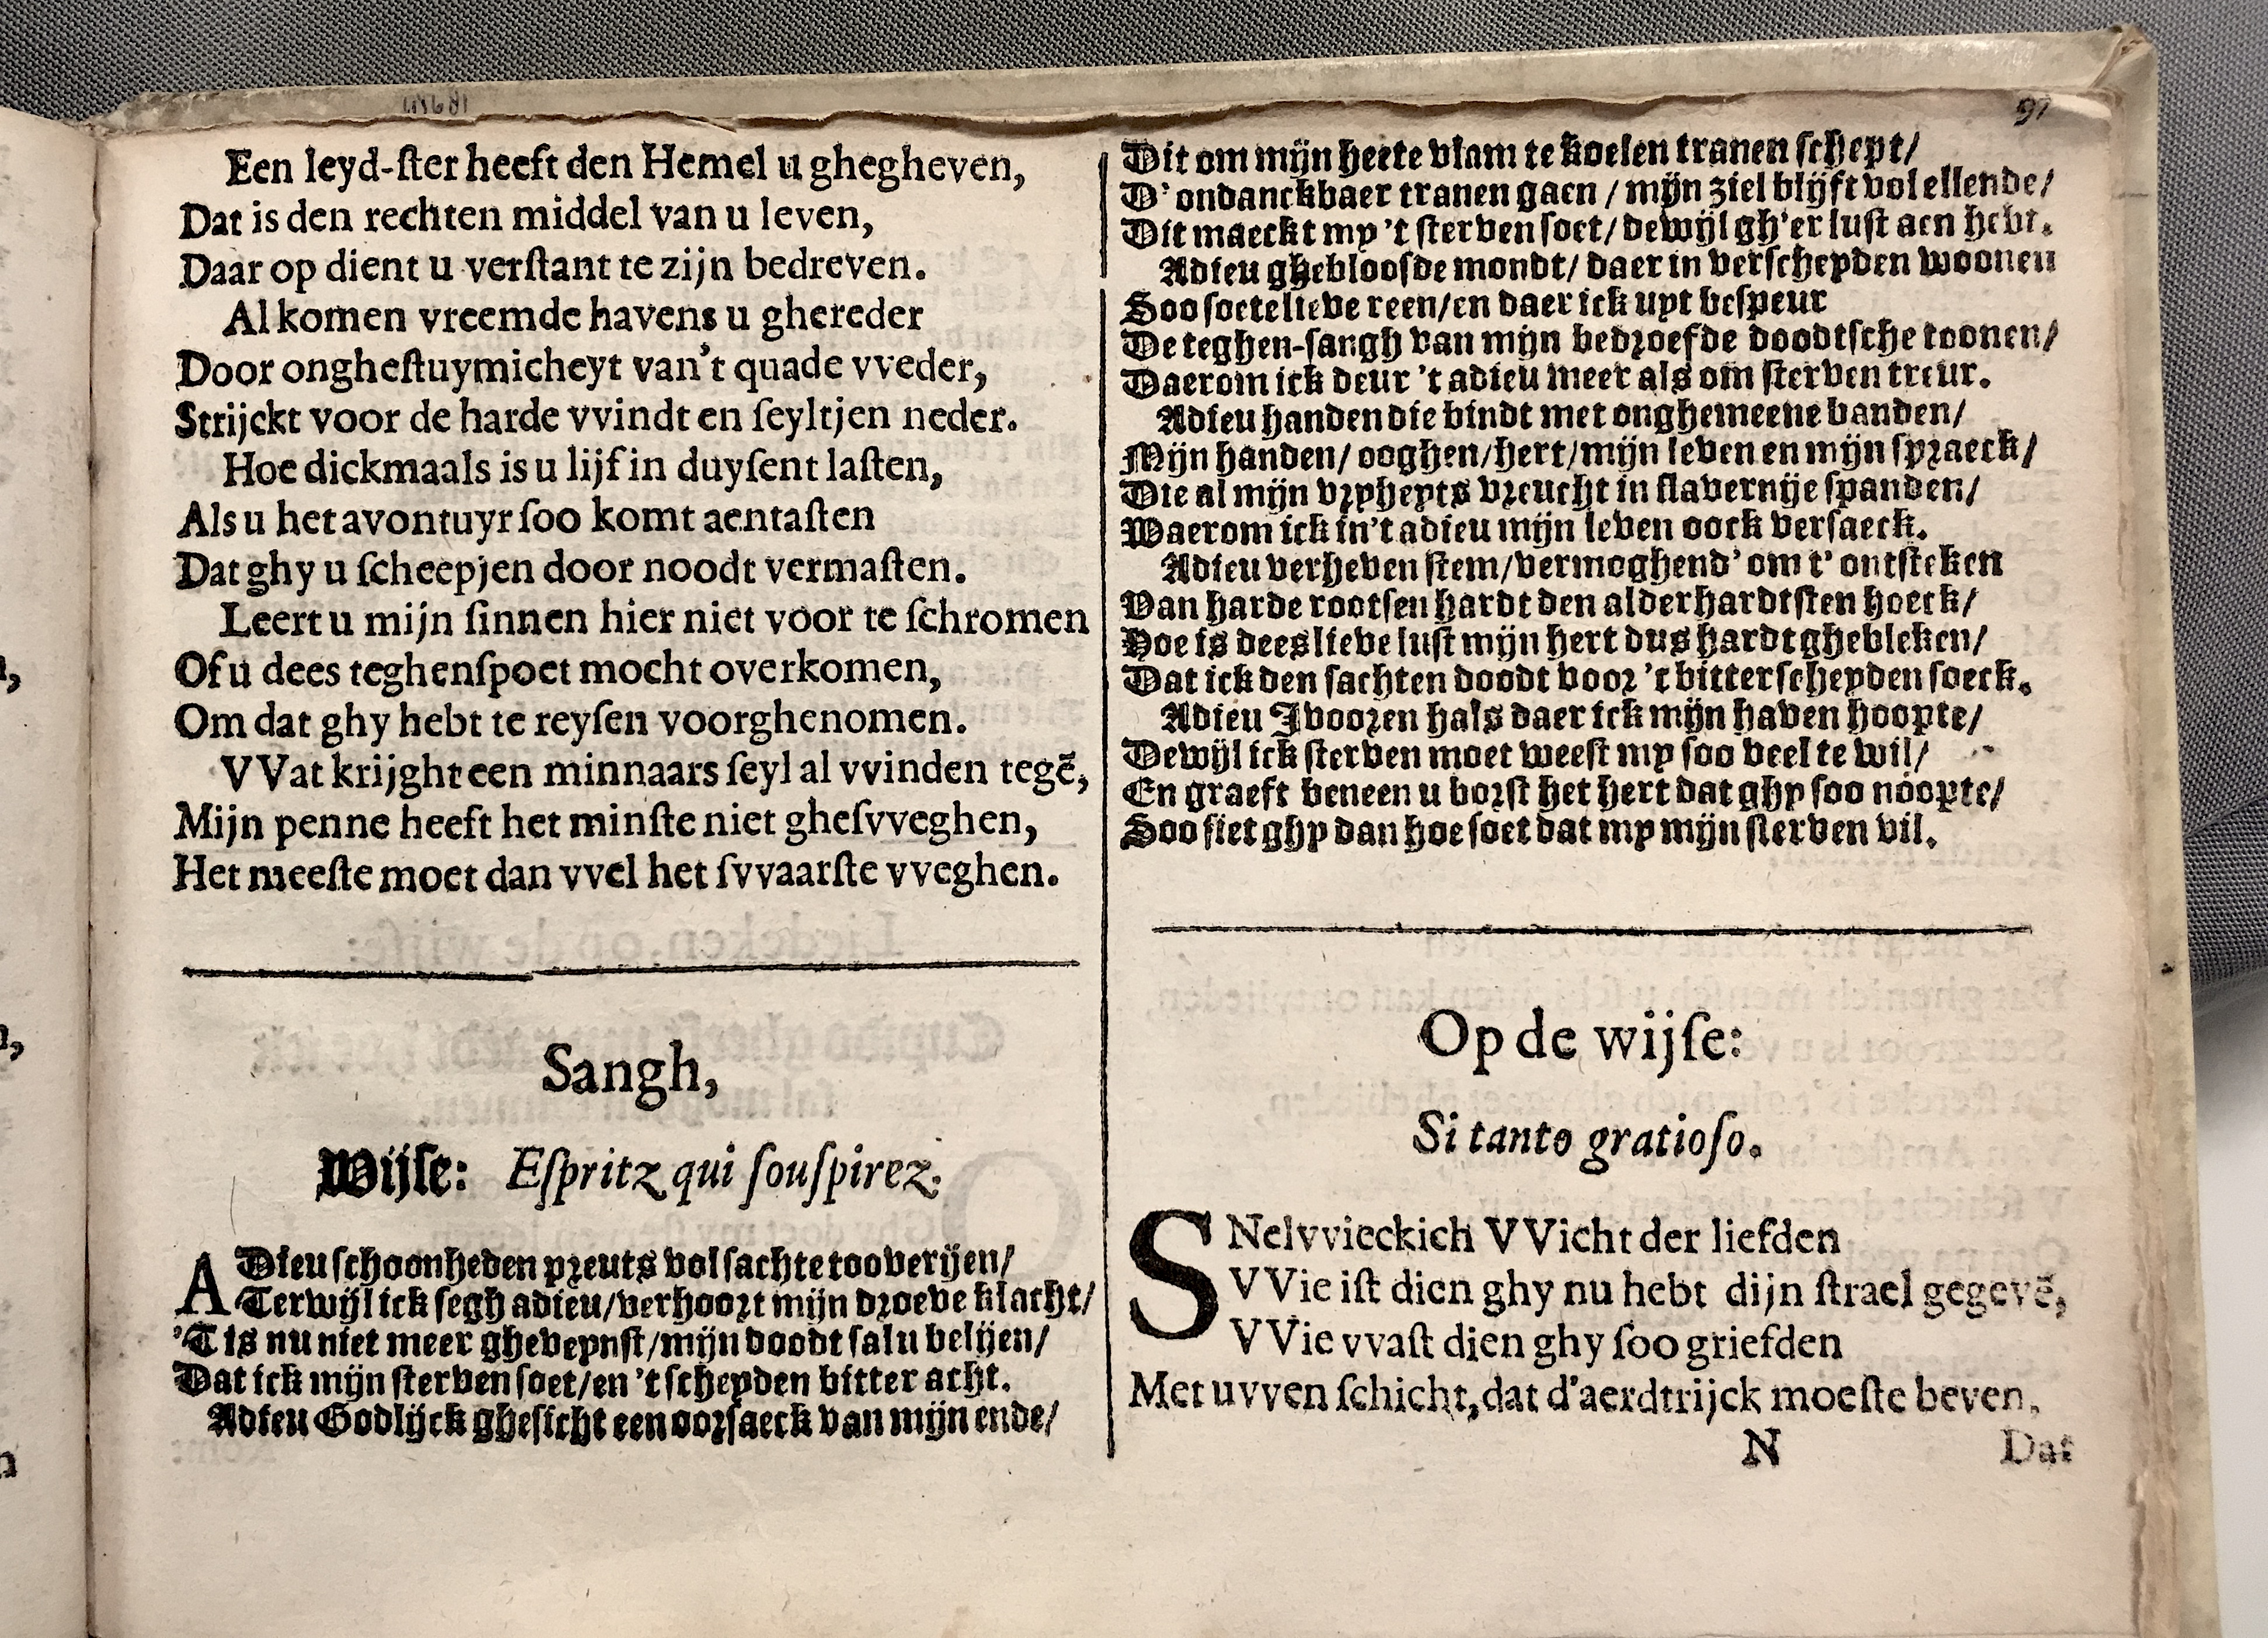 Een leyd-ſter heeft den Hemel u ghegheven,
Dat is den rechten middel van u leven,
Daar op dient u verſtant te zijn bedreven.
Al komen vreemde havens u ghereder
Door ongheſtuymicheyt van't quade vveder,
Strijckt voor de harde vvindt en ſeyltjen neder.
Hoe dickmaals is u lijf in duyſent laſten,
Als u het avontuyr ſoo komt aentaſten
Dat ghy u ſcheepjen door noodt vermaſten.
Leert u mijn ſinnen hier niet voor te ſchromen
Of u dees teghenſpoet mocht overkomen,
Om dat ghy hebt te reyſen voorghenomen.
VVat krijght een minnaars ſeyl al vvinden tegē,
Mijn penne heeft het minſte niet gheſvveghen,
Het meeſte moet dan vvel het ſvvaarſte vveghen.
Sangh,
Wijſe: Eſpritz qui ſouſpirez.
ADieu ſchoonheden preuts vol ſachte tooverijen/
Terwijl ick ſegh adieu/verhoort mijn droeve klacht/
'T is nu niet meer gheveynſt/mijn doodt ſal u belijen/
Dat ick mijn ſterven ſoet/en 't ſcheyden bitter acht.
Adieu Godlijck gheſicht een oorſaeck van mijn ende/
91
Dit om mijn heete vlam te koelen tranen ſchept/
D' ondanckbaer tranen gaen / mijn ziel blijft vol ellende/
Dit maeckt my 't ſterven ſoet/ dewijl gh'er luſt aen hebt.
Adieu ghebloosde mondt/ daer in verſcheyden woonen
Soo ſoete lieve reen/en daer ick uyt beſpeur
De teghen-ſangh van mijn bedroefde doodtſche toonen/
Daerom ick deur 't adieu meer als om ſterven treur.
Adieu handen die bindt met onghemeene banden/
Mijn handen/ ooghen/hert/mijn leven en mijn ſpraeck/
Die al mijn vryheyts vreucht in ſlavernije ſpanden/
Waerom ick in't adieu mijn leven oock verſaeck.
Adieu verheven ſtem/vermoghend' om t' ontſteken
Van harde rootſen hardt den alderhardtſten hoeck/
Hoe is dees lieve luſt mijn hert dus hardt ghebleken/
Dat ick den ſachten doodt voor 't bitter ſcheyden ſoeck.
Adieu Ivooren hals daer ick mijn haven hoopte/
Dewijl ick ſterven moet weeſt my ſoo veel te wil/
En graeft beneen u borſt het hert dat ghy ſoo noopte/
Soo ſiet ghy dan hoe ſoet dat my mijn ſterven vil.
Op de wijſe:
Si tanto gratioſo.
SNelvvieckich VVicht der liefden
VVie iſt dien ghy nu hebt dijn ſtrael gegevē,
VVie vvaſt dien ghy ſoo griefden
Met uvven ſchicht, dat d'aerdtrijck moeſte beven,
N Dat